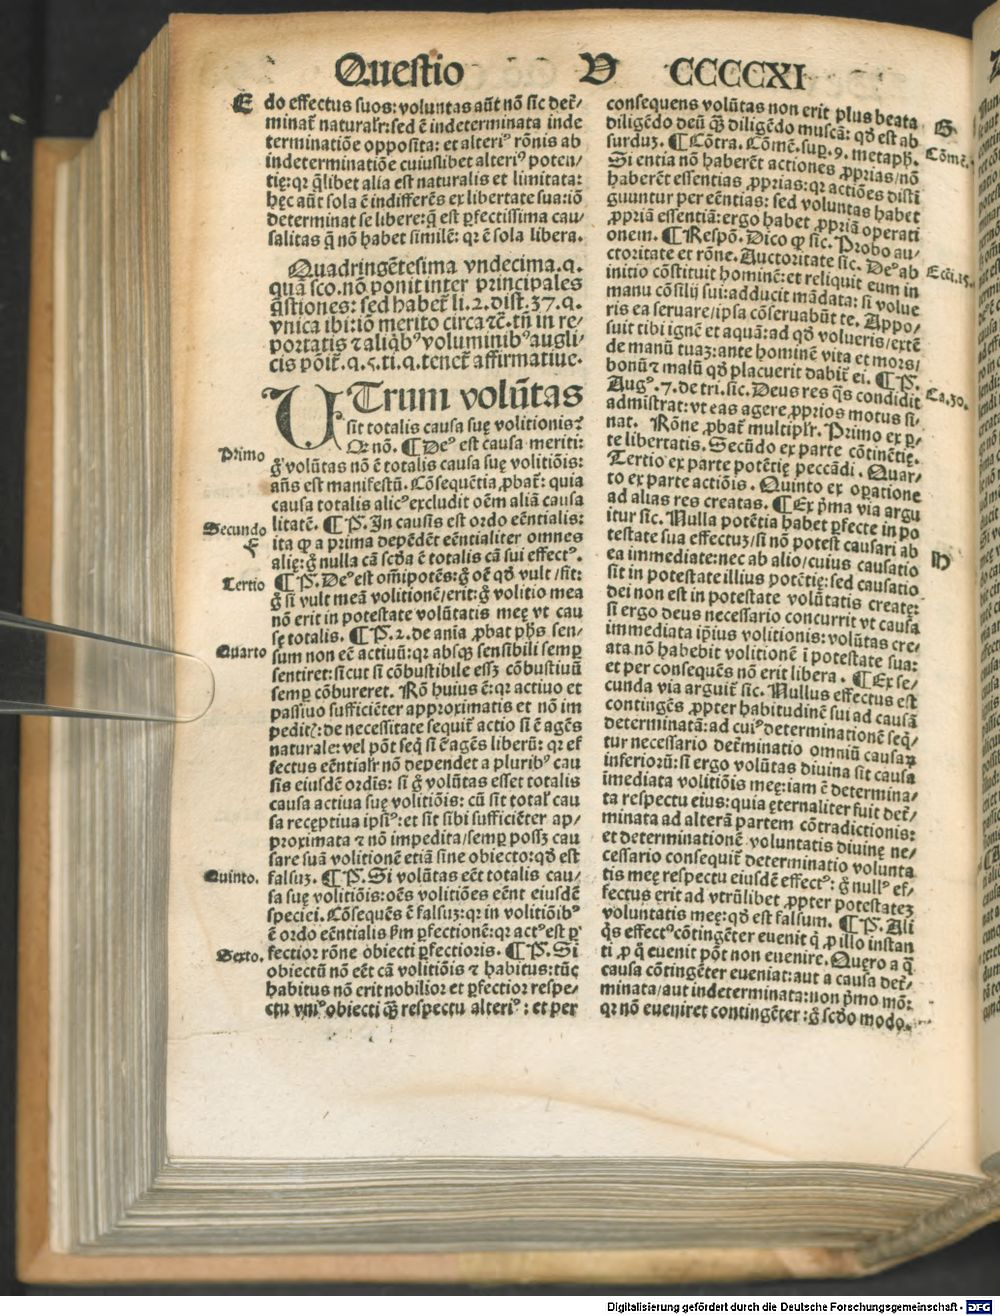 Questio V CCCCXI
E do effectus suos: volũtas aũt nõ sic det̃/
minat̃ naturalr̃: sed ẽ indeterminata inde
terminatiõe opposita: et alteriꝰ rõnis ab
indeterminatiõe cuiuslibet alteriꝰ poten/
tię: qꝛ q̃libet alia est naturalis et limitata:
hęc aũt sola ẽ indifferẽs ex libertate sua: iõ
determinat se libere: q̃ est ꝑfectissima cau/
salitas q̃ nõ habet similẽ: qꝛ ẽ sola libera.
Quadringẽtesima vndecima .q.
quã sco. nõ ponit inter principales
q̃stiones: sed habet̃ li. 2. dist. 37. q.
vnica ibi: iõ merito circa ⁊c̃. tñ in re/
portatis ⁊ aliq̃bꝰ voluminibꝰ augli/
cis põit̃ .q. 5. ti. q. tenet̃ affirmatiue.
UTrum volũtas
sit totalis causa suę volitionis?
Primo
Qꝛ nõ. ¶ Deꝰ est causa meriti:
g̊ volũtas nõ ẽ totalis causa suę volitiõis:
añs est manifestũ. Cõsequẽtia ꝓbat̃: quia
causa totalis alicꝰ excludit oẽm aliã causa
Secundo
F
litatẽ. ¶ P̃. In causis est ordo eẽntialis:
ita ꝙ a prima depẽdẽt eẽntialiter omnes
alię: g̊ nulla cã scd̃a ẽ totalis cã sui effectꝰ.
Tertio
¶ P̃. Deꝰ est om̃ipotẽs: g̊ oẽ qd̃ vult/fit:
g̊ si vult meã volitionẽ/erit: g̊ volitio mea
nõ erit in potestate volũtatis meę vt cau
Quarto
sę totalis. ¶ P̃. 2. de aĩa ꝓbat ph̃s sen/
sum non eẽ actiuũ: qꝛ absqꝫ sensibili semꝑ
sentiret: sicut si cõbustibile essꝫ cõbustiuũ
semꝑ cõbureret. Rõ huius ẽ: qꝛ actiuo et
passiuo sufficiẽter approximatis et nõ im
pedit͛: de necessitate sequit̃ actio si ẽ agẽs
naturale: vel põt seq̃ si ẽ agẽs liberũ: qꝛ ef
fectus eẽntialr̃ nõ dependet a pluribꝰ cau
sis eiusdẽ ordĩs: si g̊ volũtas esset totalis
causa actiua suę volitiõis: cũ sit total̃ cau
sa recęptiua ipsiꝰ: et sit sibi sufficiẽter ap/
proximata ⁊ nõ impedita/semꝑ possꝫ cau
sare suã volitionẽ etiã sine obiecto: qd̃ est
Quinto.
falsuꝫ. ¶ P̃. Si volũtas eẽt totalis cau/
sa suę volitiõis: oẽs volitiões eẽnt eiusdẽ
speciei. Cõsequẽs ẽ falsuꝫ: qꝛ in volitiõibꝰ
ẽ ordo eẽntialis ꝑm ꝑfectionẽ: qꝛ actꝰ est ꝑ
Sexto.
fectior rõne obiecti ꝑfectioris. ¶ P̃. Si
obiectũ nõ eẽt cã volitiõis ⁊ habitus: tũc
habitus nõ erit nobilior et ꝑfectior respe/
ctu vniꝰ obiecti q̃ꝫ respectu alteriꝰ: et per
consequens volũtas non erit plus beata
G
diligẽdo deũ q̃ꝫ diligẽdo muscã: qd̃ est ab
Cõmẽ.
surduꝫ. ¶ Cõtra. Cõmẽ. suꝑ .9. metaph̃.
Si entia nõ haberẽt actiones ꝓprias/nõ
haberẽt essentias ꝓprias: qꝛ actiões disti
guuntur per eẽntias: sed voluntas habet
ꝓpriã essentiã: ergo habet ꝓpriã operati
onem. ¶ Respõ. Dico ꝙ sic. Probo au/
ctoritate et rõne. Auctoritate sic. Deꝰ ab
Ecci.15.
initio cõstituit hominẽ: et reliquit eum in
manu cõsilij sui: adducit mãdata: si volue
ris ea seruare/ipsa cõseruabũt te. Appo/
suit tibi ignẽ et aquã: ad qd̃ volueris/extẽ
de manũ tuaꝫ: ante hominẽ vita et mors/
bonũ ⁊ malũ qd̃ placuerit dabit̃ ei. ¶ P̃.
Ca.30.
Augꝰ. 7. de tri. sic. Deus res q̃s condidit
admistrat: vt eas agere ꝓprios motus si/
nat. Rõne ꝓbat̃ multiplr̃. Primo ex ꝑ/
te libertatis. Secũdo ex parte cõtinẽtię.
Tertio ex parte potẽtię peccãdi. Quar/
to ex parte actiõis. Quinto ex oꝑatione
ad alias res creatas. ¶ Ex p̃ma via argu
itur sic. Nulla potẽtia habet ꝑfecte in po
H
testate sua effectuꝫ/si nõ potest causari ab
ea immediate: nec ab alio/cuius causatio
sit in potestate illius potẽtię: sed causatio
dei non est in potestate volũtatis creatę:
si ergo deus necessario concurrit vt causa
immediata ip̃ius volitionis: volũtas cre/
ata nõ habebit volitionẽ ĩ potestate sua:
et per consequẽs nõ erit libera. ¶ Ex se/
cunda via arguit̃ sic. Nullus effectus est
contingẽs ꝓpter habitudinẽ sui ad causã
determinatã: ad cuiꝰ determinationẽ seq̃/
tur necessario det̃minatio omniũ causaꝝ
inferiorũ: si ergo volũtas diuina sit causa
ĩmediata volitiõis meę: iam ẽ determina/
ta respectu eius: quia ęternaliter fuit det̃/
minata ad alterã partem cõtradictionis:
et determinationẽ voluntatis diuinę ne/
cessario consequit̃ determinatio volunta
tis meę respectu eiusdẽ effectꝰ: g̊ nullꝰ ef/
fectus erit ad vtrũlibet ꝓpter potestateꝫ
voluntatis meę: qd̃ est falsum. ¶ P̃. Ali
q̃s effectꝰ cõtingẽter euenit q̃ ꝓ illo instan
ti ꝓ q̃ euenit põt non euenire. Quęro a q̃
causa cõtingẽter eueniat: aut a causa det̃/
minata/aut indeterminata: non p̃mo mõ:
qꝛ nõ eueniret contingẽter: g̊ scd̃o modo.
Digitalisierung gefördert durch die Deutsche Forschungsgemeinschaft - DFG